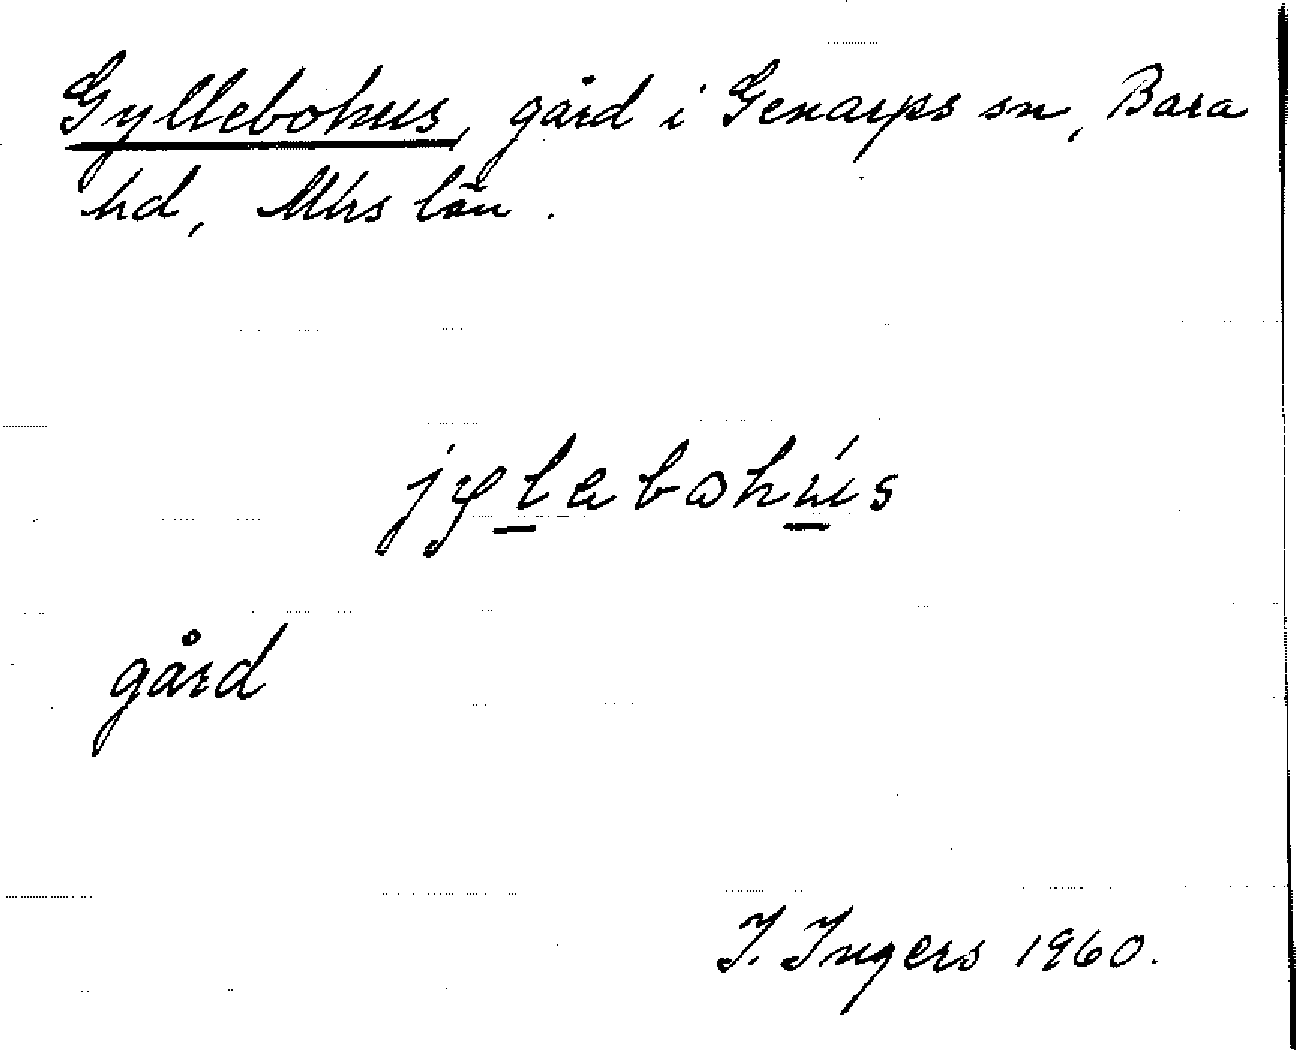 Gyllebohus, gård i Genarps sn, Bara
hd, Mhs län.
jylabohús
gård
I. Ingers 1960.